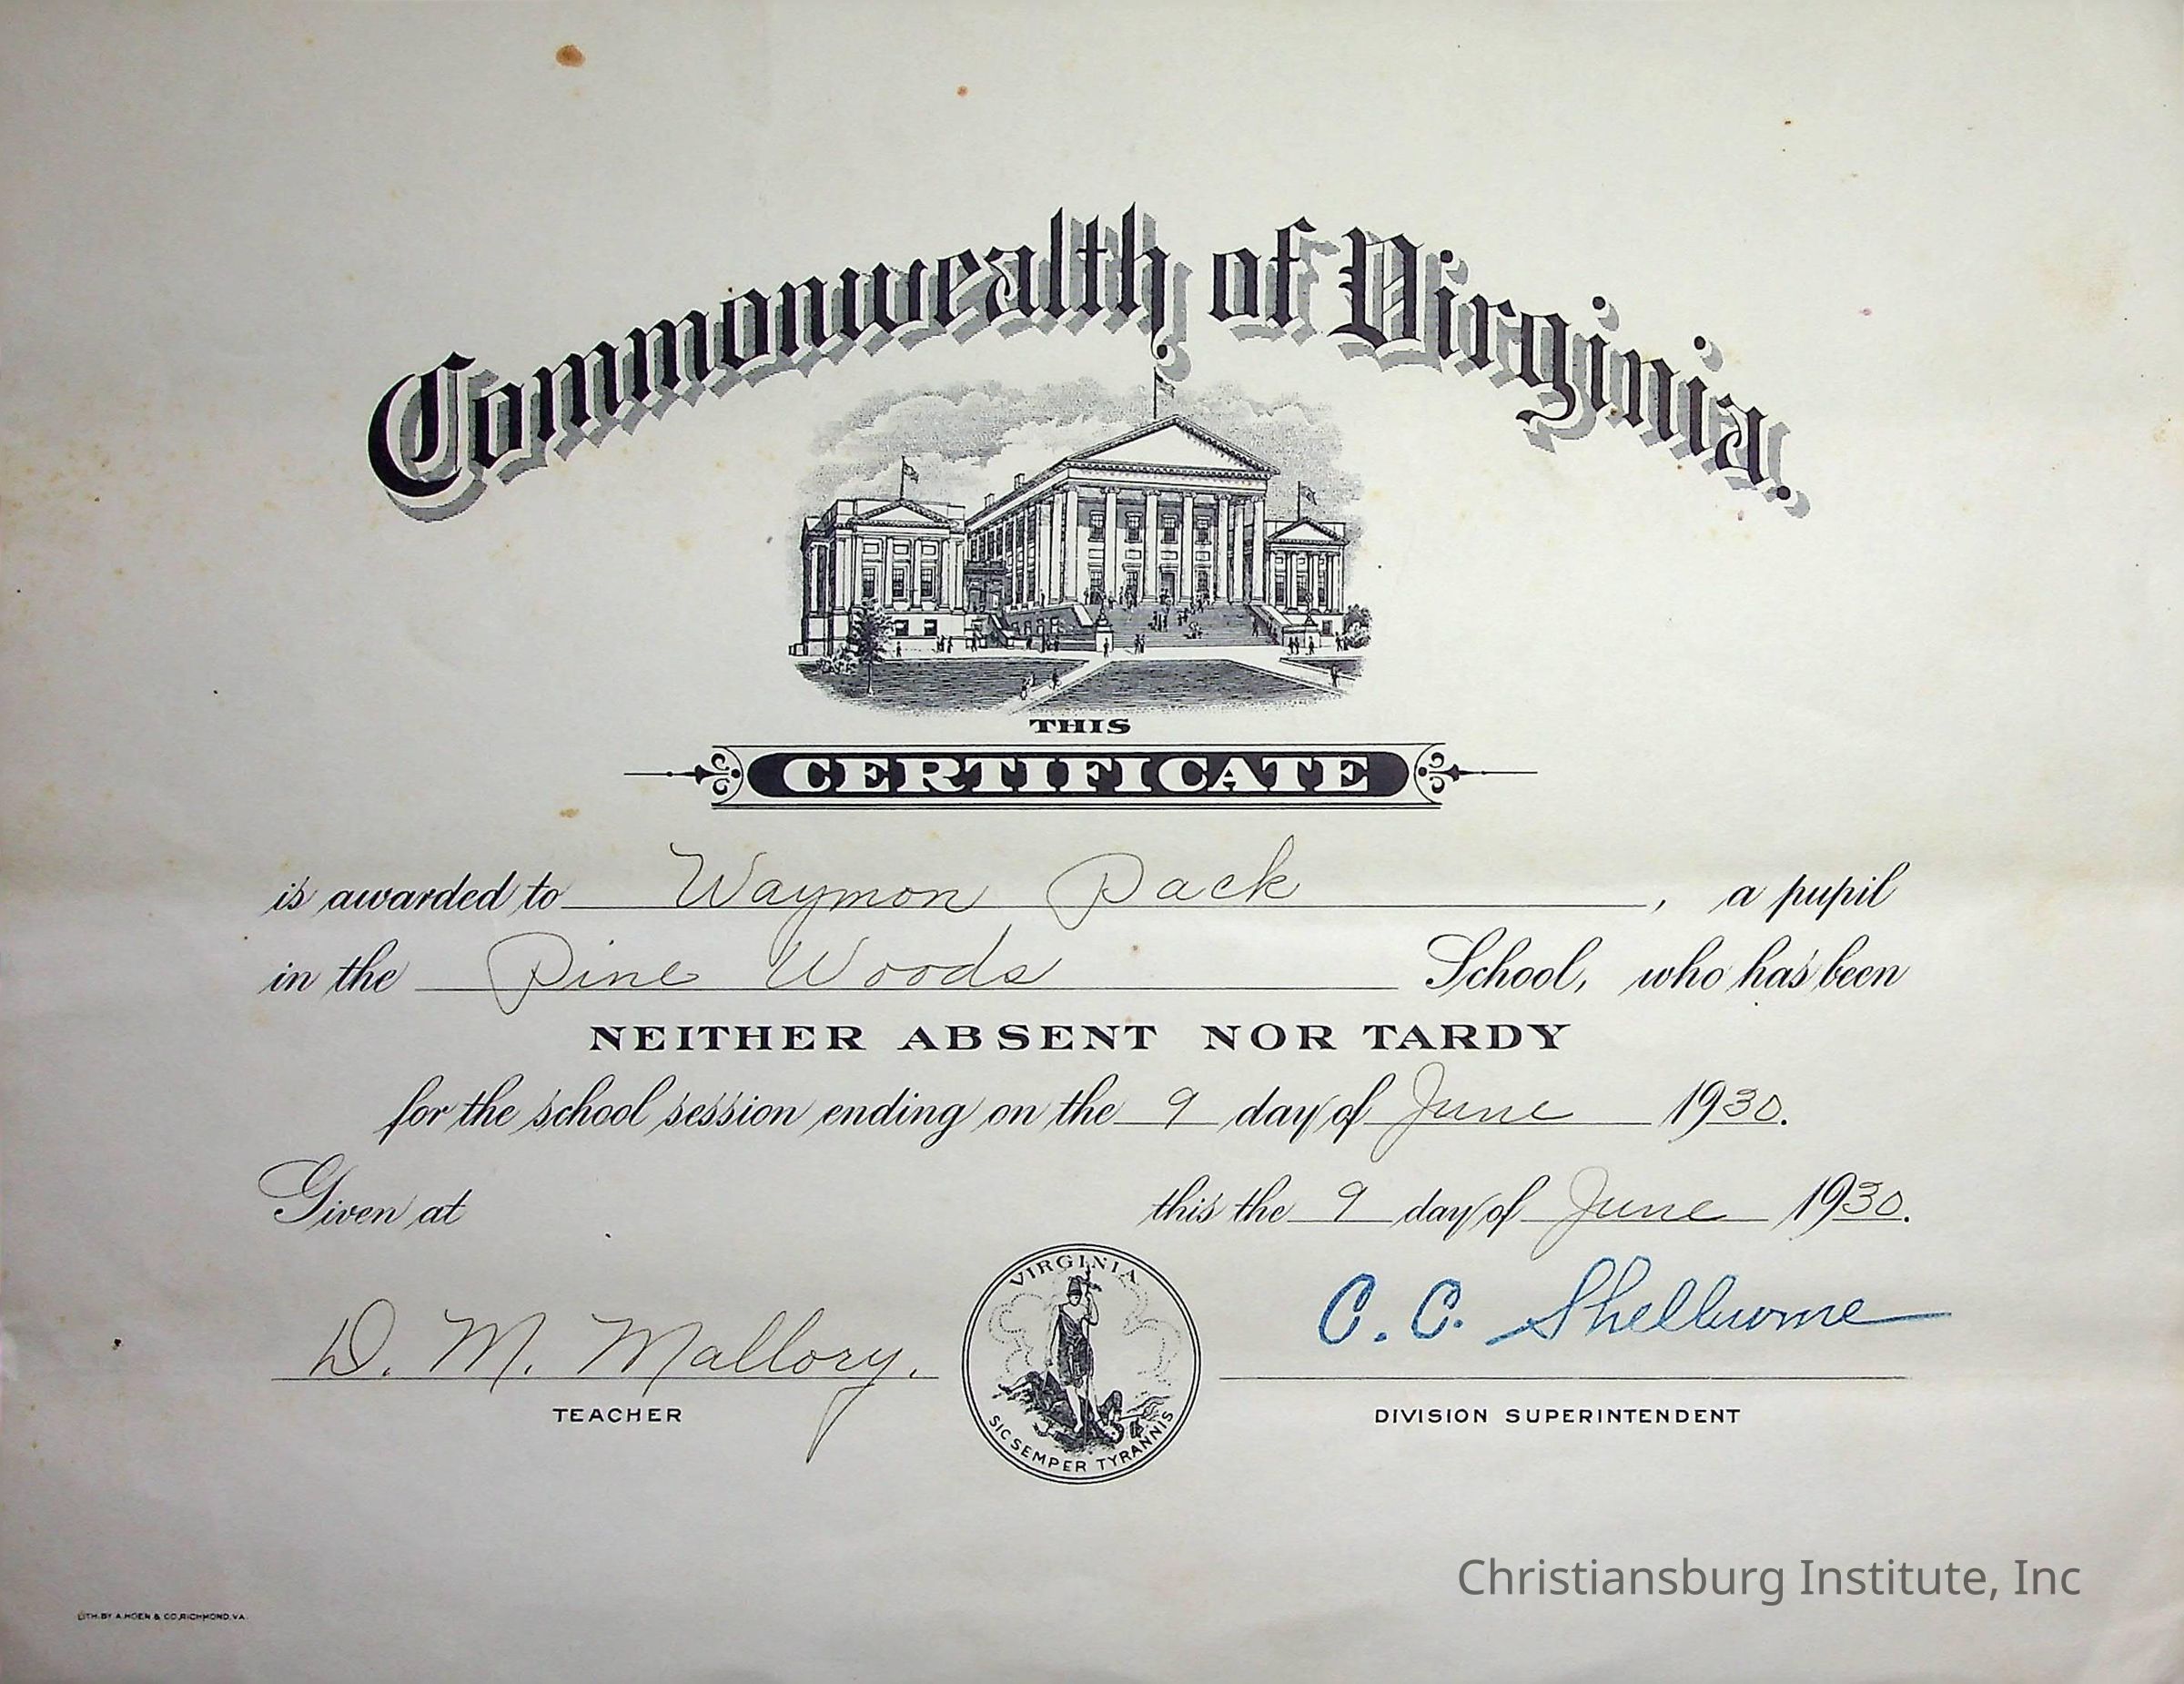 Commonwealth of Virginia.
THIS
CERTIFICATE
is awarded to Waymon Pack, a pupil
in the Pine Woods School, who has been
NEITHER ABSENT NOR TARDY
for the school session ending on the 9 day of June 1930.
Given at this the 9 day of June 1930.
D. M. Mallory.
TEACHER
VIRGINIA
SIC SEMPER TYRANNIS
C. C. Shelburne
DIVISION SUPERINTENDENT
Christiansburg Institute, Inc
LITH. BY A. HOEN & CO. RICHMOND, VA.